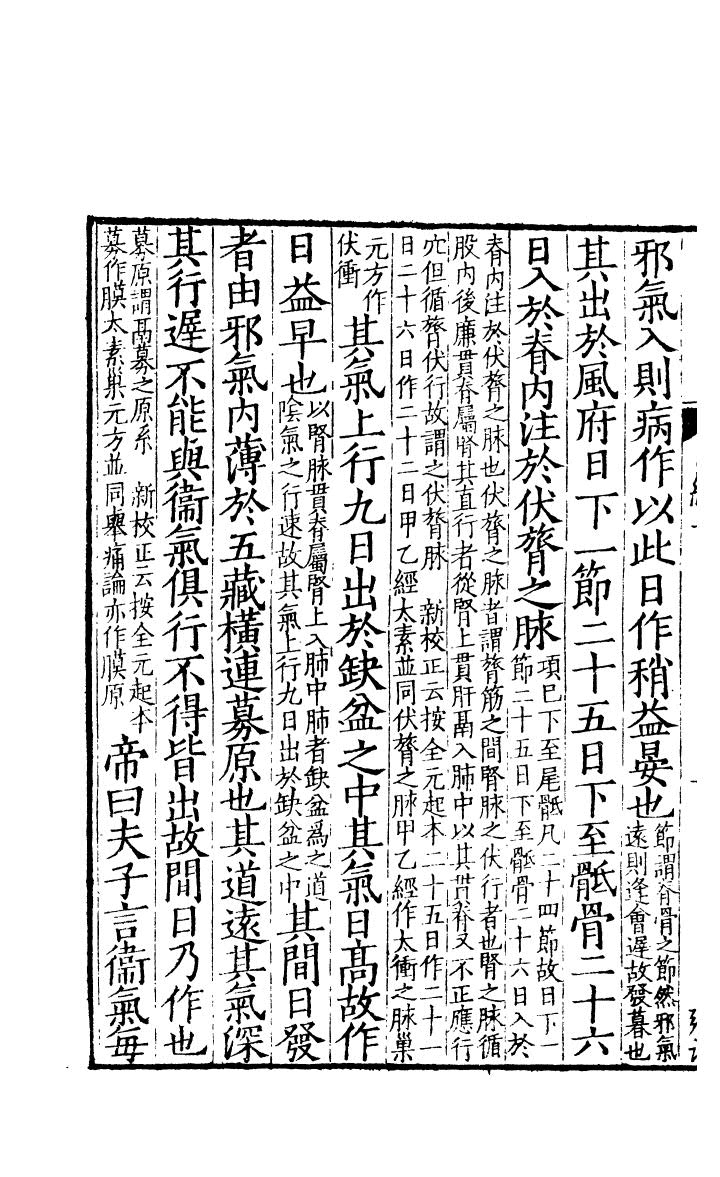 邪氣入則病作以此日作稍益晏也節謂脊骨之節然邪氣
遠則逢會遲故發暮也
其出於風府日下一節二十五日下至骶骨二十六
日入於脊內注於伏膂之脉項已下至尾骶凡二十四節故日下一
節二十五日下至骶骨二十六日入於
脊內注於伏膂之脉也伏膂之脉者謂膂筋之間腎脉之伏行者也腎之脉循
股內後廉貫脊屬腎其直行者從腎上貫肝鬲入肺中以其貫脊又不正應行
穴但循膂伏行故謂之伏膂脉 新校正云按全元起本二十五日作二十一
日二十六日作二十二日甲乙經太素並同伏膂之脉甲乙經作太衝之脉巢
元方作
伏衝
其氣上行九日出於缺盆之中其氣日高故作
日益早也以腎脉貫脊屬腎上入肺中肺者缺盆爲之道
陰氣之行速故其氣上行九日出於缺盆之中
其間日發
者由邪氣內薄於五藏橫連募原也其道遠其氣深
其行遲不能與衞氣俱行不得皆出故間日乃作也
募原謂鬲募之原系 新校正云按全元起本
募作膜太素巢元方並同舉痛論亦作膜原
帝曰夫子言衞氣每